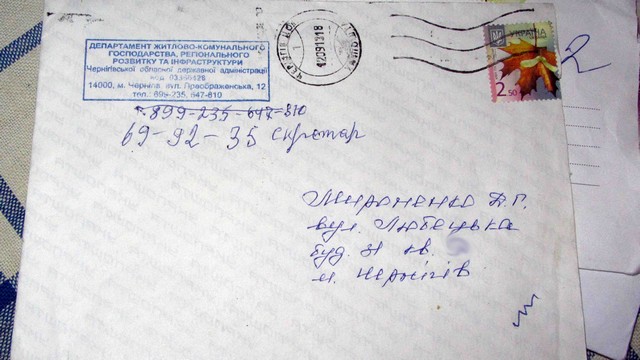 ДЕПАРТАМЕНТ ЖИТЛОВО-КОМУНАЛЬНОГО
ГОСПОДАРСТВА, РЕГІОНАЛЬНОГО
РОЗВИТКУ ТА ІНФРАСТРУКТУРИ
Чернігівської обласної державної адміністрації
код
14000, м. Чернігів, вул. Преображенська, 12
тел.: 699-235, 647-810
УКРАЇНА
2.50
2
т. 899-235-647-810
69-92-35 Скретар
Мироненко Д.Г.
вул. Любецька
буд. кв.
м. Чернігів